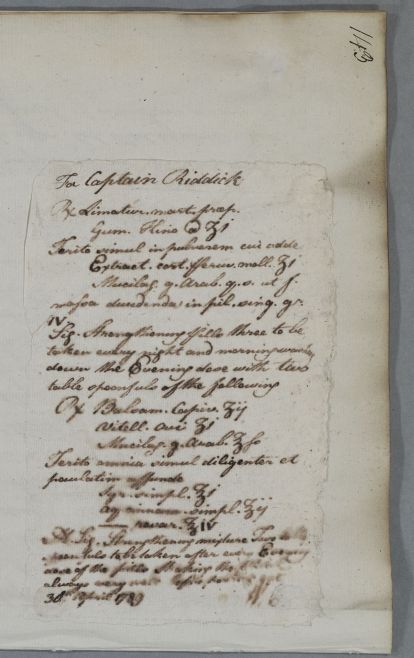 113
For Captain Riddick
Rx Limatur. mart. præp.
Gum. Kino @ ʒi
Terito simul in pulverem cui adde
Extract. cort. Peruv. moll. ʒi
Mucilag. g. Arab. q. s. ut f.
massa ducenda in pil. sing. gr.
IV
Sig. Strengthening pills three to be
taken every night and morning
down the Evening dose with two
table spoonfuls of the following
Rx Balsam. Capiv. ʒij
Vitell. ovi ʒi
Mucilag. g. Arab. ʒſs
Terito omnia simul diligenter et
paulatim affunde
Syr. simpl. ʒi
aq. cinnam. simpl. ʒij
ʒIV
Sig. Strengthening mixture Two
spoonfuls to be taken after every Evening
dose of the pills shaking the
always very well
30th April 1789